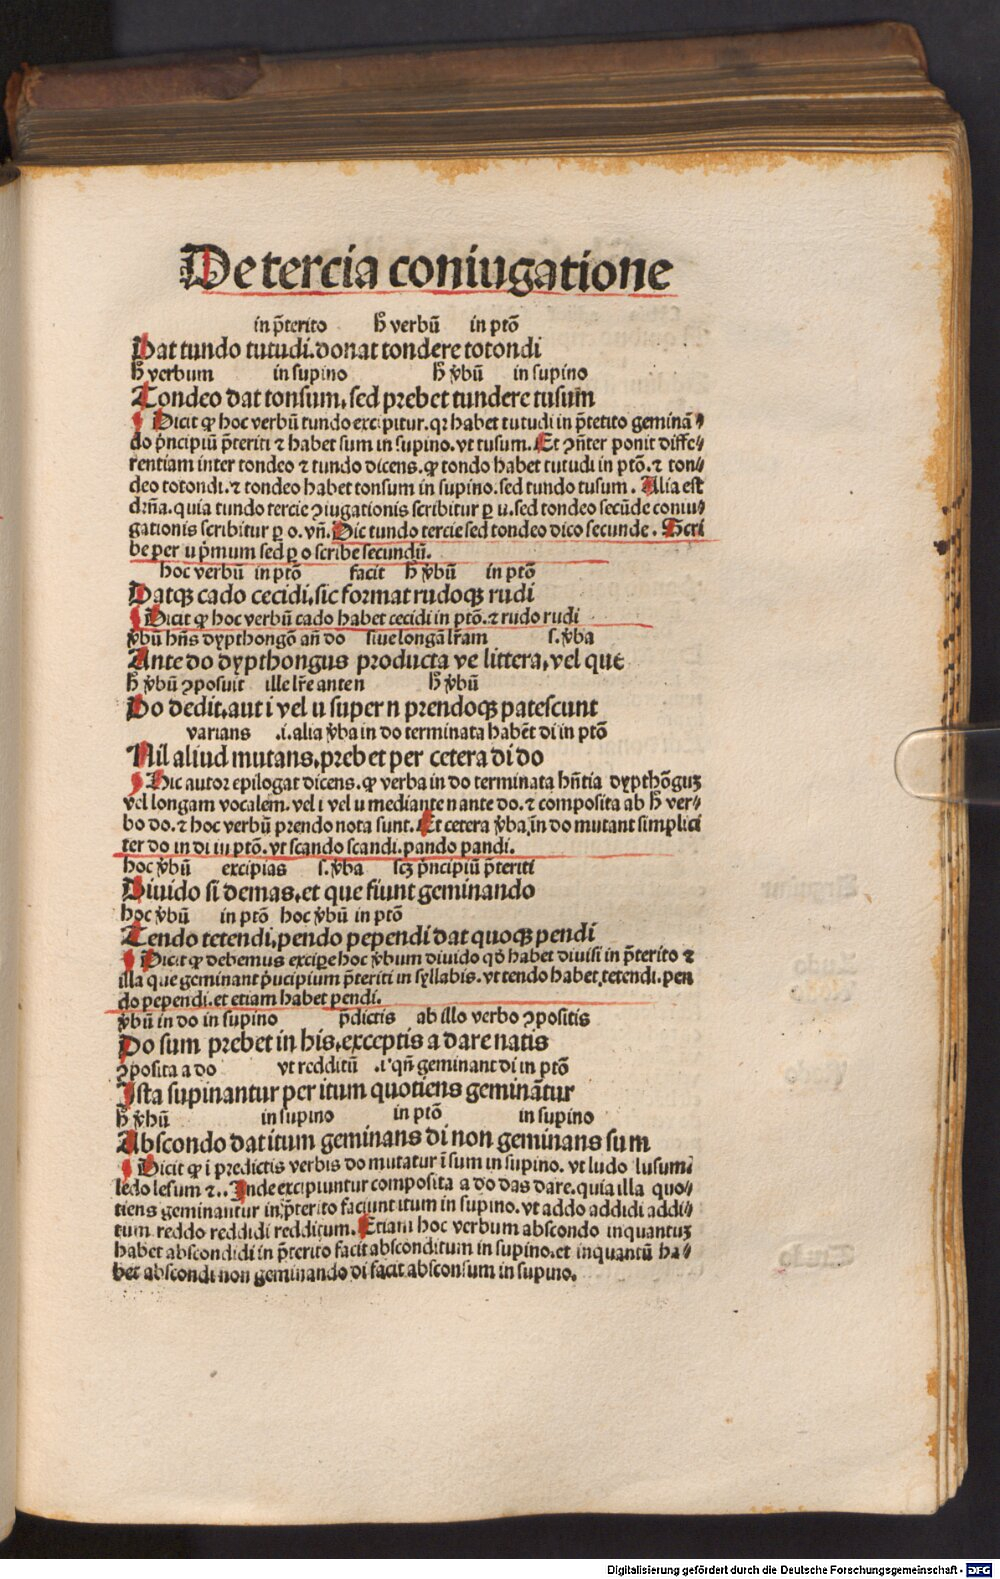 De tercia coniugatione
in p̃terito h̄ verbū in ptõ
Dat tundo tutudi. donat tondere totondi
h̄ verbum in supino h̄ v̄bū in supino
Tondeo dat tonsum, sed prebet tundere tusum
Dicit ꝙ hoc verbū tundo excipitur. qꝛ habet tutudi in p̃tetito geminā⸗
do p̃ncipiū p̃teriti ⁊ habet sum in supino. vt tusum. Et ꝯñter ponit diffe⸗
rentiam inter tondeo ⁊ tundo dicens. ꝙ tondo habet tutudi in ptõ. ⁊ ton⸗
deo totondi. ⁊ tondeo habet tonsum in supino. sed tundo tusum. Alia est
drña. quia tundo tercie ꝯiugationis scribitur ꝑ u. sed tondeo secūde coniu⸗
gationis scribitur ꝑ o. vñ. Dic tundo tercie sed tondeo dico secunde. Scri
be per u p̃mum sed ꝑ o scribe secundū.
hoc verbū in ptõ facit h̄ v̄bū in ptõ
Datqꝫ cado cecidi, sic format rudoqꝫ rudi
Dicit ꝙ hoc verbū cado habet cecidi in ptõ. ⁊ rudo rudi
v̄bū hñs dypthongõ añ do siue longā lr̃am s. v̄ba
Ante do dypthongus producta ve littera, vel que
h̄ v̄bū ꝯposuit ille lr̃e ante n h̄ v̄bū
Do dedit, aut i vel u super n prendoqꝫ patescunt
varians .i. alia v̄ba in do terminata habēt di in ptõ
Nil aliud mutans, prebet per cetera di do
Hic autor epilogat dicens. ꝙ verba in do terminata hñtia dypthõguꝫ
vel longam vocalem. vel i vel u mediante n ante do. ⁊ composita ab h̄ ver⸗
bo do. ⁊ hoc verbū prendo nota sunt. Et cetera v̄ba, in do mutant simplici
ter do in di in ptõ. vt scando scandi. pando pandi.
hoc v̄bū excipias s. v̄ba scꝫ p̃ncipiū p̃teriti
Diuido si demas, et que fiunt geminando
hoc v̄bū in ptõ hoc v̄bū in ptõ
Tendo tetendi, pendo pependi dat quoqꝫ pendi
Dicit ꝙ debemus exciꝑe hoc v̄bum diuido qď habet diuisi in p̃terito ⁊
illa que geminant p̃ucipium p̃teriti in syllabis. vt tendo habet tetendi. pen
do pependi. et etiam habet pendi.
v̄bū in do in supino p̃dictis ab illo verbo ꝯpositis
Do sum prebet in his, exceptis a dare natis
ꝯposita a do vt redditū .i. qñ geminant di in ptõ
Ista supinantur per itum quotiens geminātur
h̄ v̄bū in supino in ptõ in supino
Abscondo dat itum geminans di non geminans sum
Dicit ꝙ i predictis verbis do mutatur ī sum in supino. vt ludo lusum.
ledo lesum ⁊. . Inde excipiuntur composita a do das dare. quia illa quo⸗
tiens geminantur in p̃terito faciunt itum in supino. vt addo addidi addi⸗
tum reddo reddidi redditum. Etiam hoc verbum abscondo inquantuꝫ
habet abscondidi in p̃terito facit absconditum in supino. et inquantū ha⸗
bet abscondi non geminando di facit absconsum in supino.
Digitalisierung gefördert durch die Deutsche Forschungsgemeinschaft - DFG